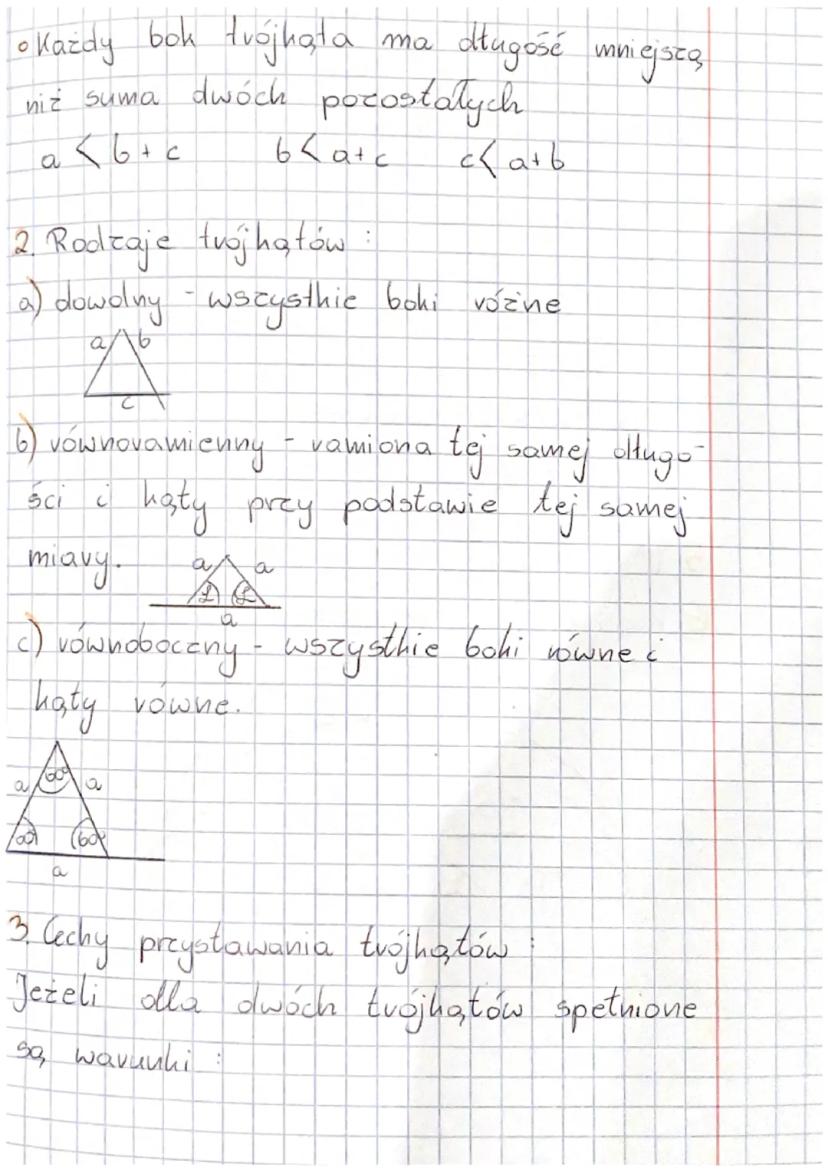 • Każdy bok trójkąta ma długość mniejszą
niż suma dwóch pozostałych
a < b + c b < a + c c < a + b
2. Rodzaje trójkątów :
a) dowolny - wszystkie boki różne
a b
c
b) równoramienny - ramiona tej samej długo-
ści i kąty przy podstawie tej samej
miary.
a a
α α
a
c) równoboczny - wszystkie boki równe i
kąty równe.
60°
a a
60° 60°
a
3. Cechy przystawania trójkątów :
Jeżeli dla dwóch trójkątów spełnione
są warunki :